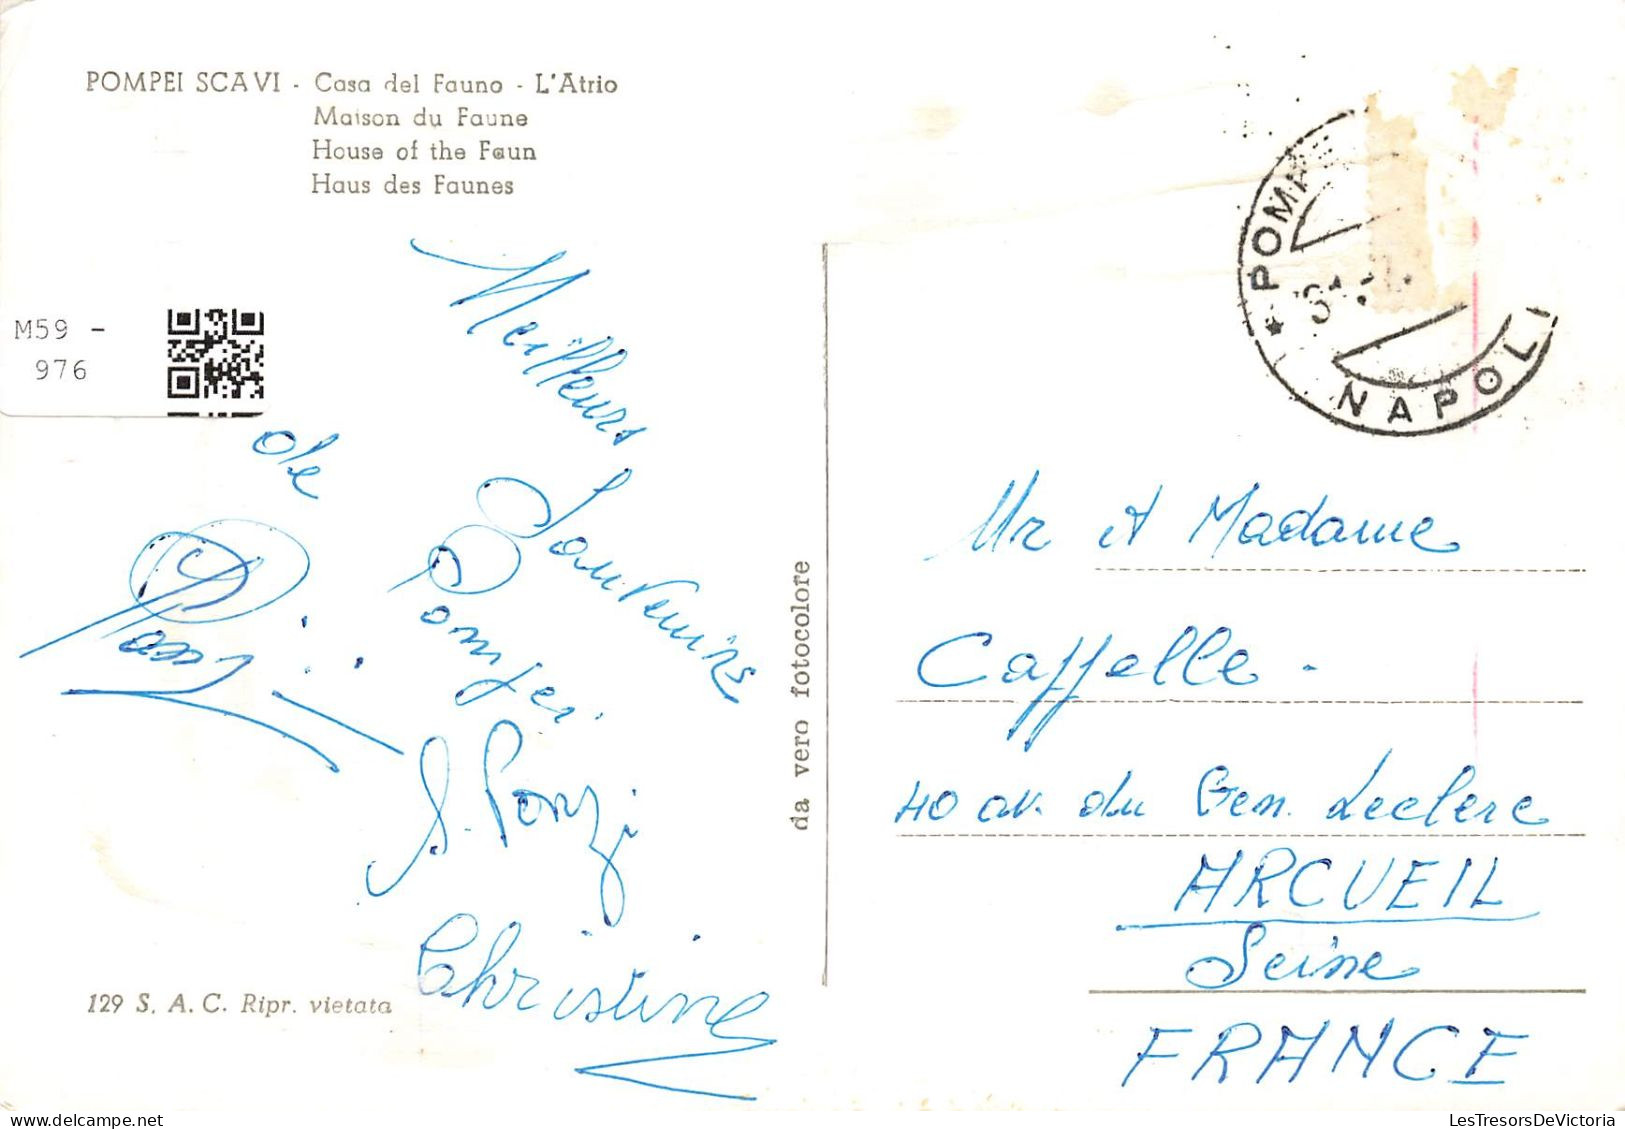 POMPEI SCAVI - Casa del Fauno - L'Atrio
Maison du Faune
House of the Faun
Haus des Faunes
M59 -
976
Meilleurs Souvenirs
de Pompei
S. Ponzi
Christine
da vero fotocolore
129 S. A. C. Ripr. vietata
POMPEI
NAPOLI
Mr et Madame
Caffelle -
40 av. du Gen. Leclerc
ARCUEIL
Seine
FRANCE
LesTresorsDeVictoria.com